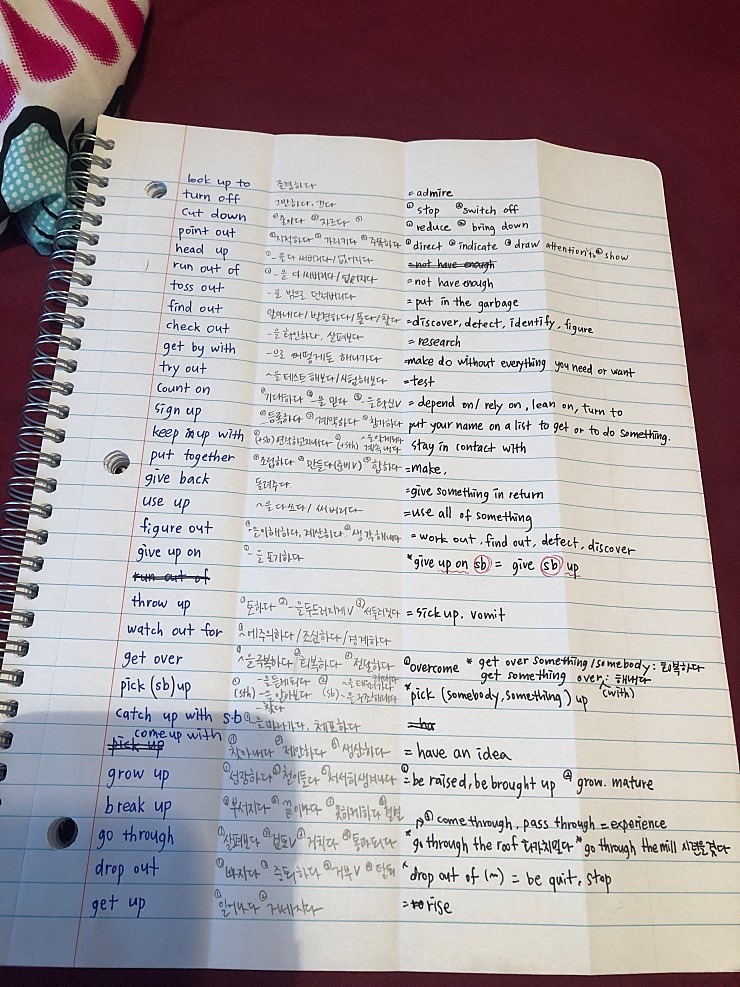 look up to 존경하다 = admire
turn off 그만하다, 끄다 ① stop ② switch off
cut down ① 줄이다 ② 자르다 ① reduce ② bring down
point out ① 지적하다 ② 가리키다 ③ 주목하다 ① direct ② indicate ③ draw attention to ④ show
head up = not have enough
run out of ① ~을 다 써버리다/ 없어지다 = not have enough
toss out ~을 밖으로 던져버리다 = put in the garbage
find out 알아내다/ 발견하다/ 찾다 = discover, detect, identify, figure
check out ~을 확인하다, 살펴보다 = research
get by with ~으로 어떻게든 해나가다 = make do without everything you need or want
try out ~을 테스트해보다/시험해보다 = test
count on ① 기대하다 ② ~을 믿다 ③ = depend on/ rely on, lean on, turn to
sign up ① 등록하다 ② 계약하다 ③ 참가하다 put your name on a list to get or to do something.
keep up with (+sb) (+sth) stay in contact with
put together ① 조립하다 ② 만들다 ③ 합하다 = make.
give back 돌려주다 = give something in return
use up ~을 다 쓰다/ 써버리다 = use all of something
figure out ① ~을 이해하다, 계산하다 ② 생각해내다 = work out. find out, detect, discover
give up on ① ~을 포기하다 *give up on sb = give sb up
run out of
throw up ① 토하다 ② = sick up. vomit
watch out for ~에 주의하다/조심하다/경계하다
get over ① ~을 극복하다 ② 회복하다 ③ 전달하다 ① overcome * get over something/somebody: 회복하다
get something over (with): 해내다
pick (sb) up (sth) (sb) * pick (somebody, something) up
catch up with s.b ① ~을 따라가다. 체포하다
pick up come up with ① 찾아내다 ② 제안하다 ③ 생산하다 = have an idea
grow up ① 성장하다 ② 철이들다 ③ 서서히 생겨나다 ① = be raised, be brought up ② grow. mature
break up ① 부서지다 ② 끝이나다 ③
go through ① 살펴보다 ② 검토V ③ 거치다 ④ 통과되다 ① come through, pass through = experience
* go through the roof * go through the mill
drop out ① 빠지다 ② 중퇴하다 ③ 거부V ④ 탈퇴 * drop out of (~) = be quit, stop
get up ① 일어나다 ② 거세지다 = rise